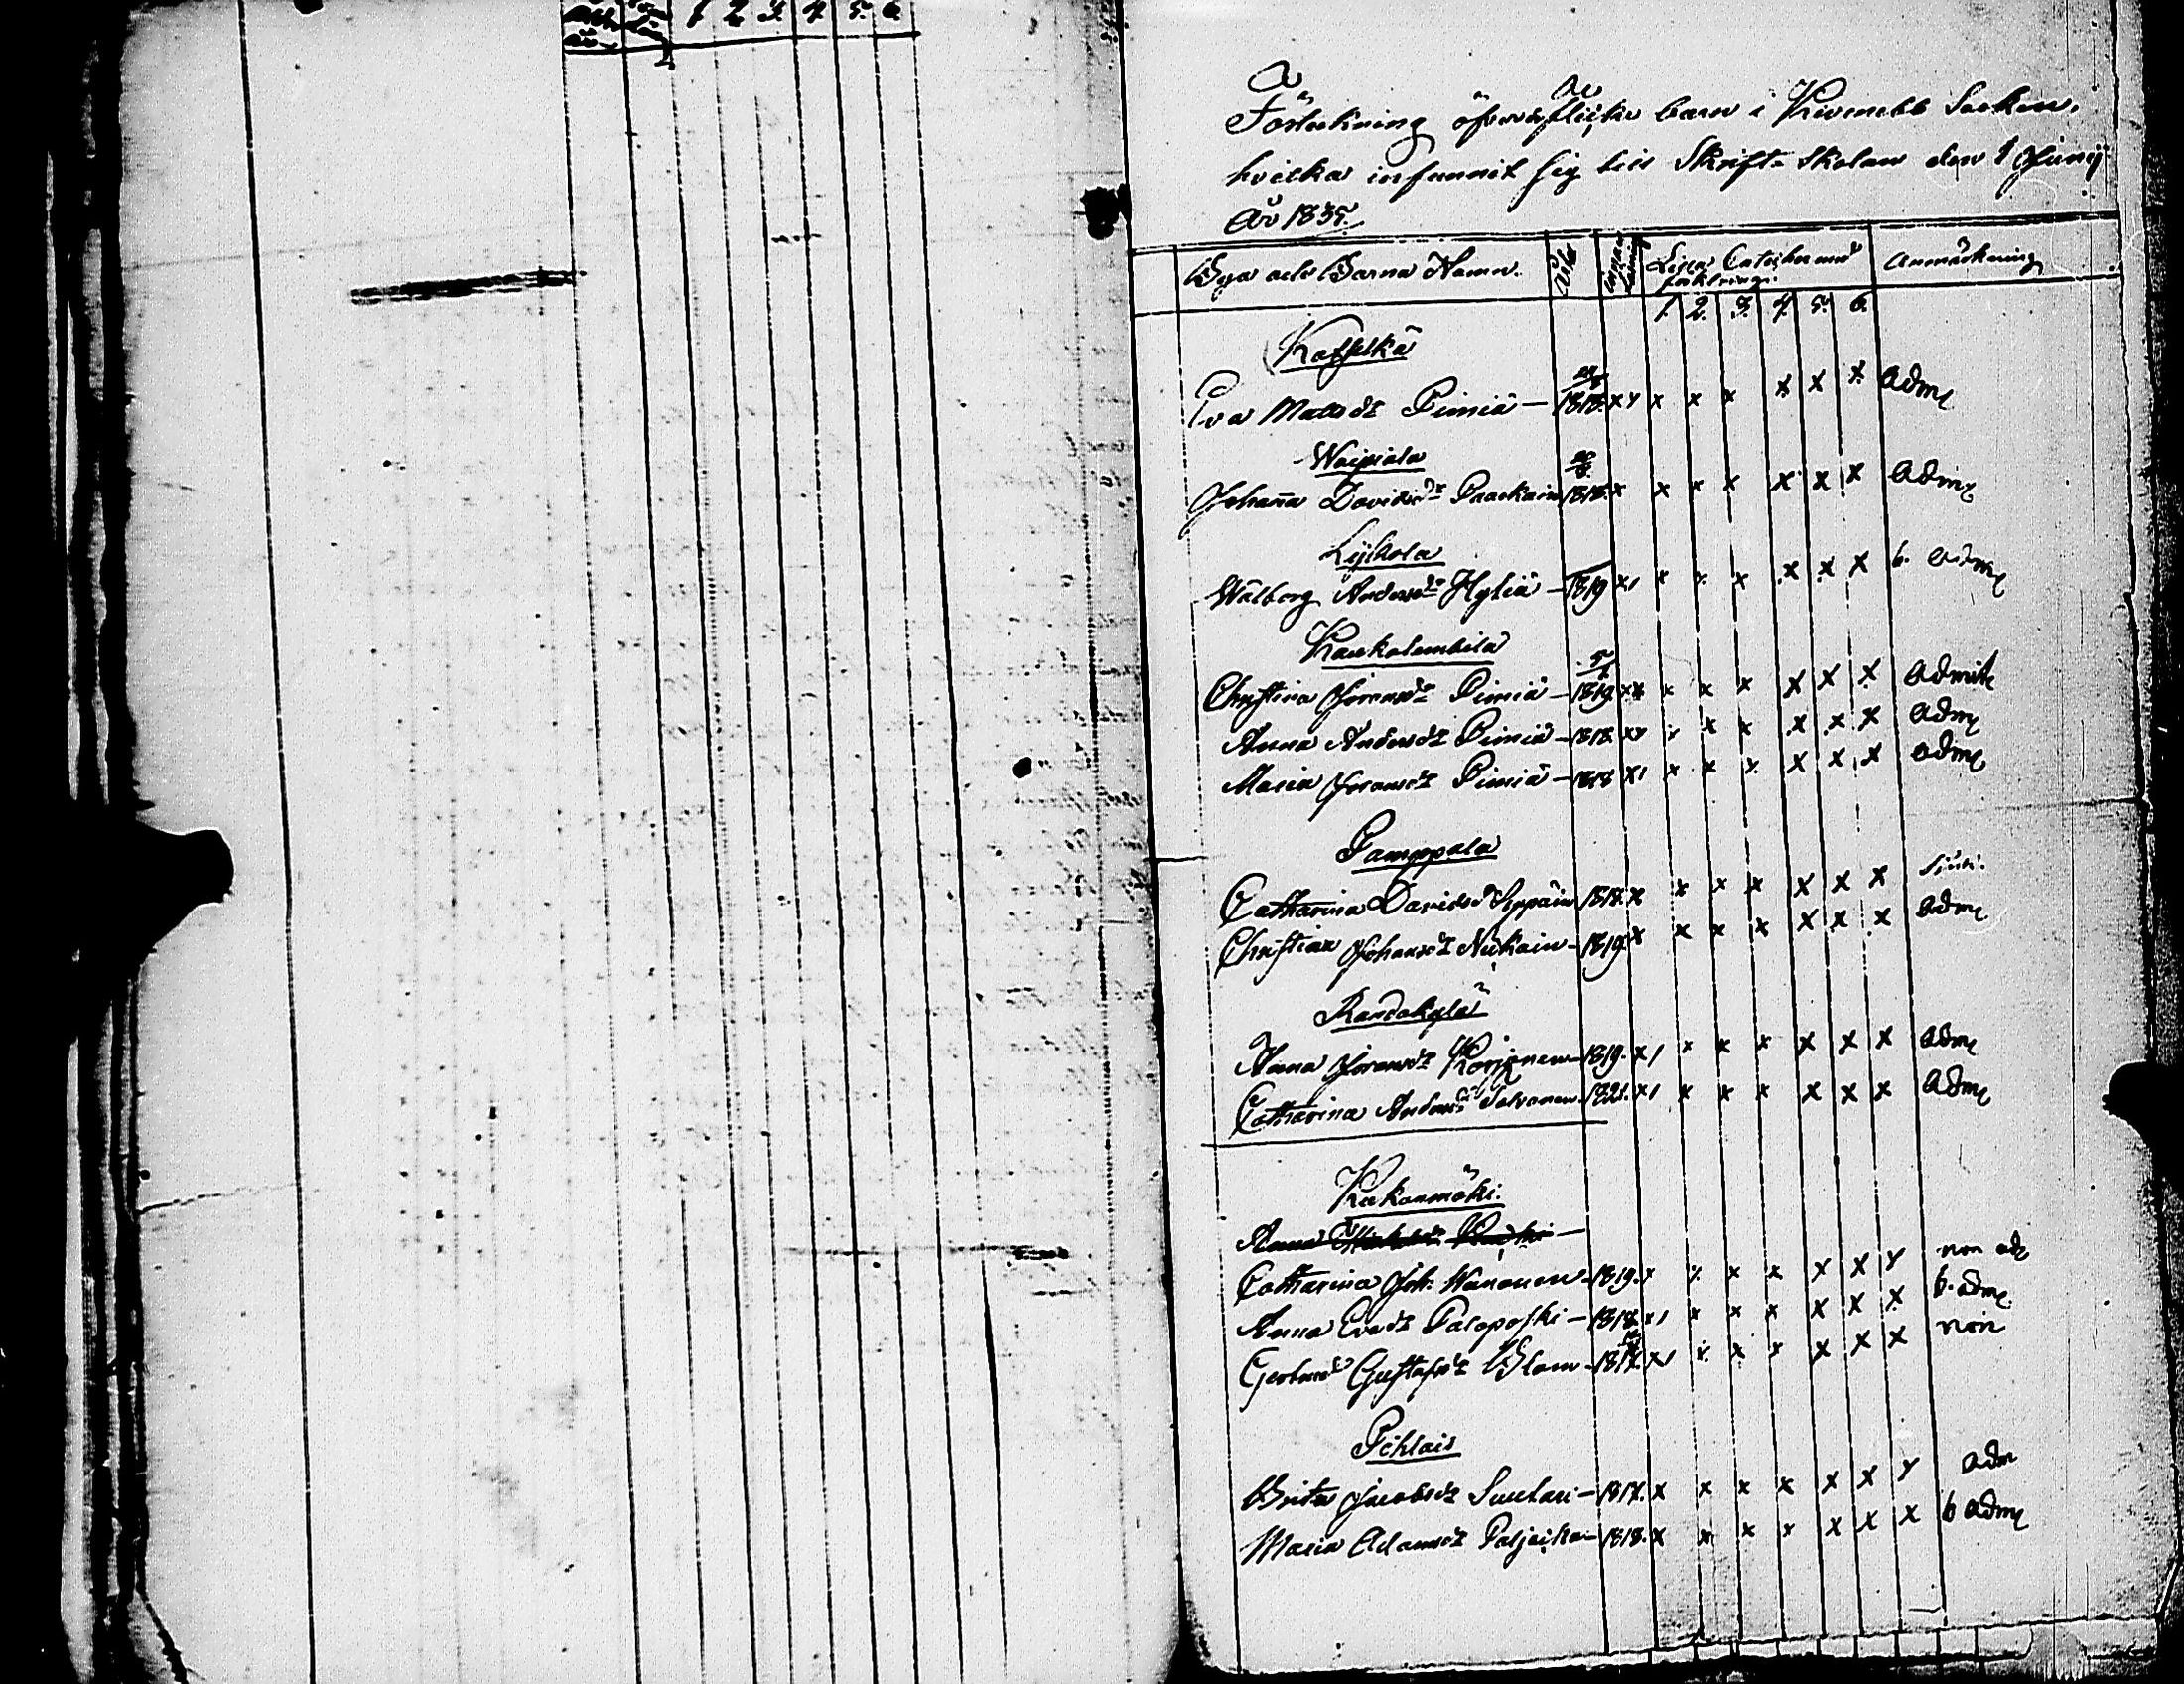 1. 2. 3. 4. 5. 6.
Förteckning öfver de flicke barn i Kivenebb Socken,
hvilka infunnit sig till Skrift-Skolan den 1 Junij
År 1835.
Bya och Barna Namn. Lilla Catechesens förklaring. Anmärkning
1. 2. 3. 4. 5. 6.
Eva Matsdr Pimiä — 1818. x x x x x x Adm
Waipiala
Johanna Davidsdr Paackain 1818. x x x x x x x Adm
Liikola
Walborg Andersdr Hytiä — 1819 x x x x x x b. adm
Kaukolembila
Christina Göransdr Pimiä — 1819. x x x x x x Admit
Anna Andersdr Pimiä — 1818 x x x x x x Adm
Maria Göransdr Pimiä — 1818 x x x x x x Adm
Pamppala
Catharina Davidsdr Seppäin 1818. x x x x x x x
Christina Johansdr Nickain — 1819 x x x x x x x Adm
Randakylä
Anna Göransdr Korjonen — 1819. x x x x x x Adm
Catharina Andersdr Salvanen. 1821. x x x x x x Adm
Kekonmäki.
Anna
Catharina Joh. Wanonen — 1819. x x x x x x non ad
Anna Evadr Palaposki — 1818 x x x x x x b. adm
Gertrud Gustafsdr Blom — x x x x x x non
Pihlais
Brita Jacobsdr Suutari — 1817. x x x x x x Adm
Maria Adamsdr Paljaika — 1818. x x x x x x x b Adm